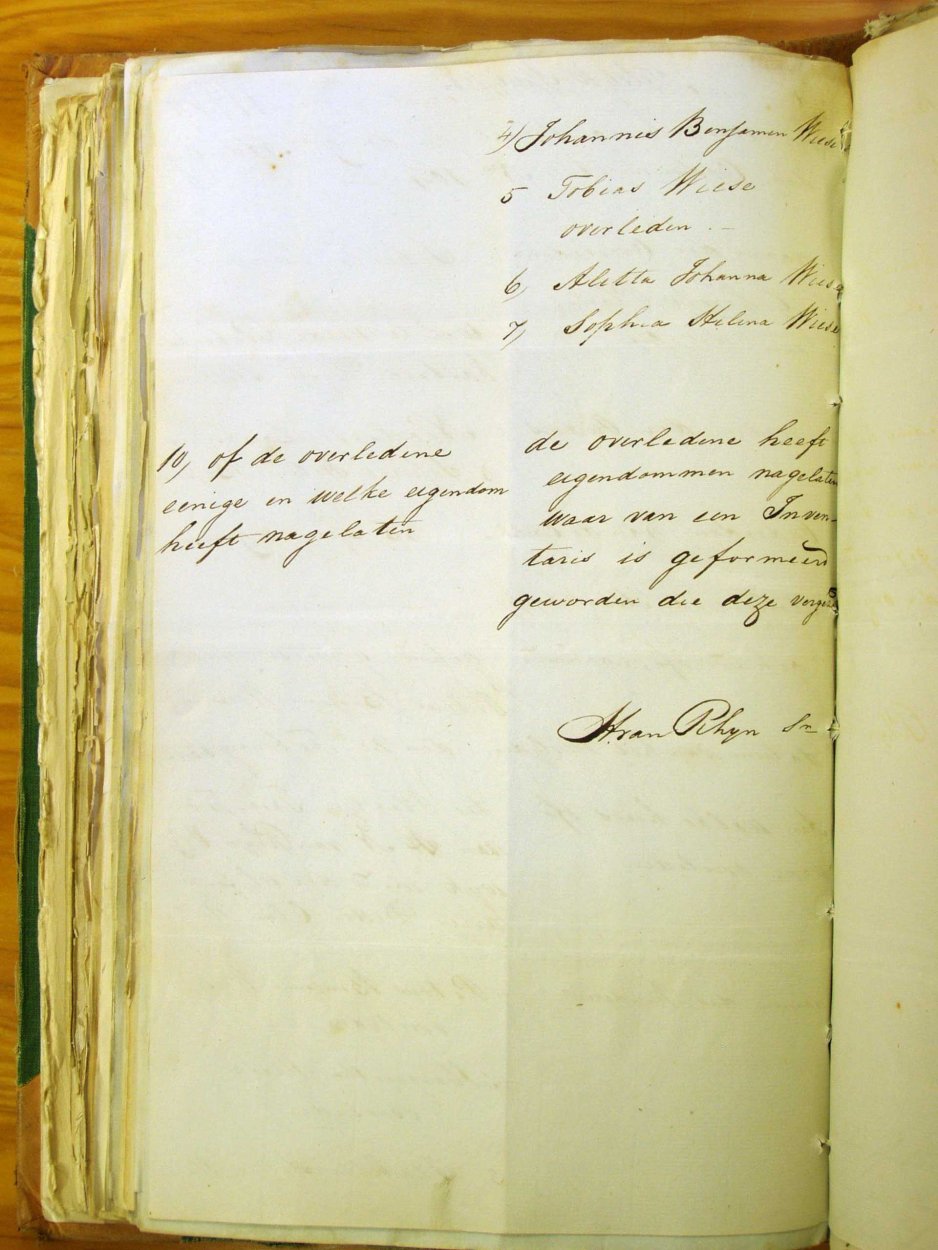 4) Johannis Benjamen Wiese
5 Tobias Wiese
overleden. –
6, Aletta Johanna Wiese
7, Sophia Helena Wiese
10, of de overledene
einige en welke eigendom
heeft nagelaten
de overledene heeft
eigendommen nagelaten
waar van een Inven-
taris is geformeerd
geworden die deze
van Rhyn Sr